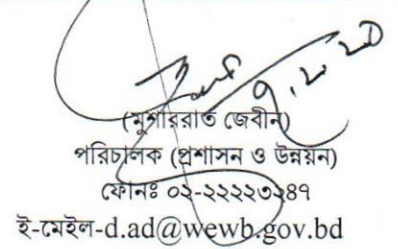 (মুশাররাত জেবীন)
পরিচালক (প্রশাসন ও উন্নয়ন)
ফোনঃ ০২-২২২২৩২৪৭
ই-মেইল-d.ad@wewb.gov.bd